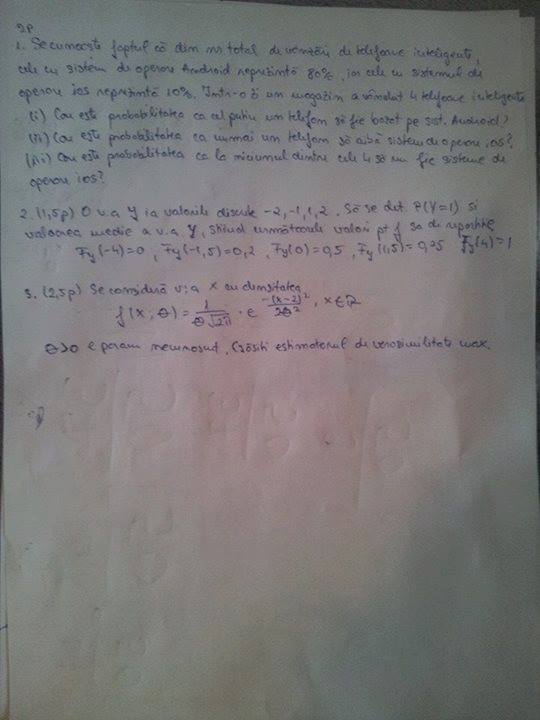 2p
1. Se cunoaște faptul că din nr total de vânzări de telefoane inteligente,
cele cu sistem de operare Android reprezintă 80%, iar cele cu sistemul de
operare ios reprezintă 10%. Într-o zi un magazin a vândut 4 telefoane inteligente
(i) Care este probabilitatea ca cel puțin un telefon să fie bazat pe sist. Android?
(ii) Care este probabilitatea ca numai un telefon să aibă sistem de operare ios?
(iii) Care este probabilitatea ca la niciunul dintre cele 4 să nu fie sisteme de
operare ios?
2. (1,5p) O v.a Y ia valorile discrete -2, -1, 1, 2. Să se det. P(Y=1) si
valoarea medie a v.a. Y, știind următoarele valori pt f sa de repartiție
Fy(-4)=0, Fy(-1,5)=0,2, Fy(0)=0,5, Fy(1,5)=0,75 Fy(4)=1
3. (2,5p) Se consideră v.a X cu densitatea
f(x;θ) = 1/(θ√2π) · e^(-(x-2)²/2θ²), x∈R
θ>0 e param necunoscut. Găsiti estimatorul de verosimilitate max.